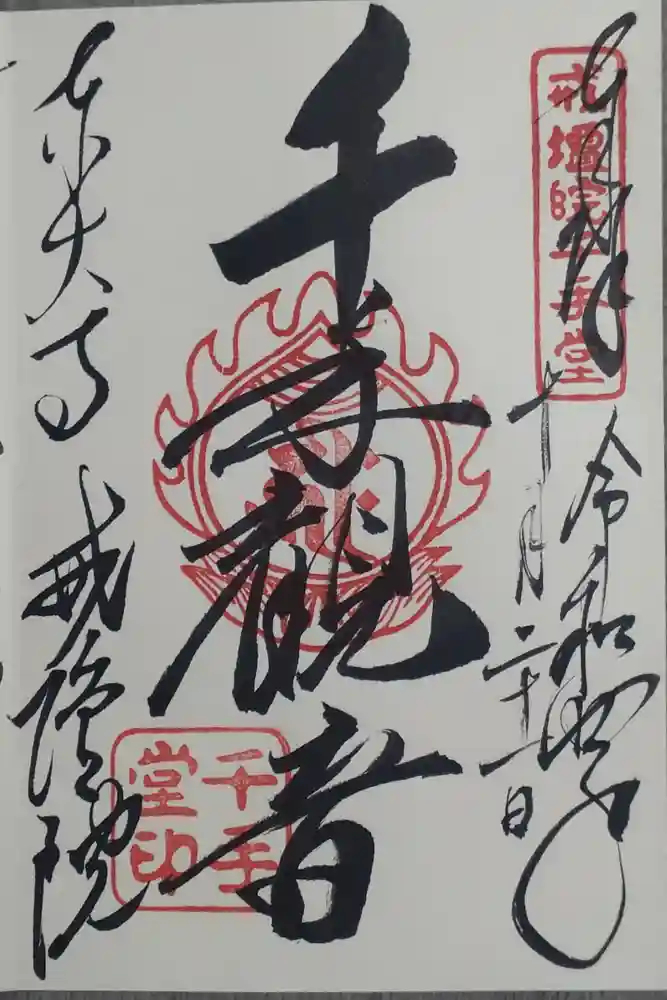 奉拝
戒壇院千手堂
令和四年
十一月二十一日
千手観音
千手堂印
東大寺 戒壇院